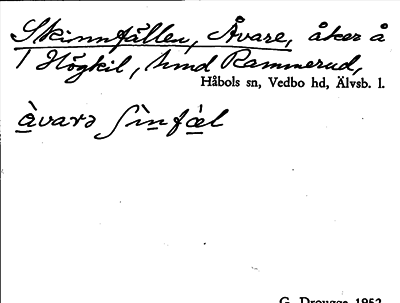 Skinnfällen, Åvare, åker å
1 Högkil, hmd Rammerud,
Håbols sn, Vedbo hd, Älvsb. l.
àvarə ʃìnfæ̀l
G. Drougge 1952